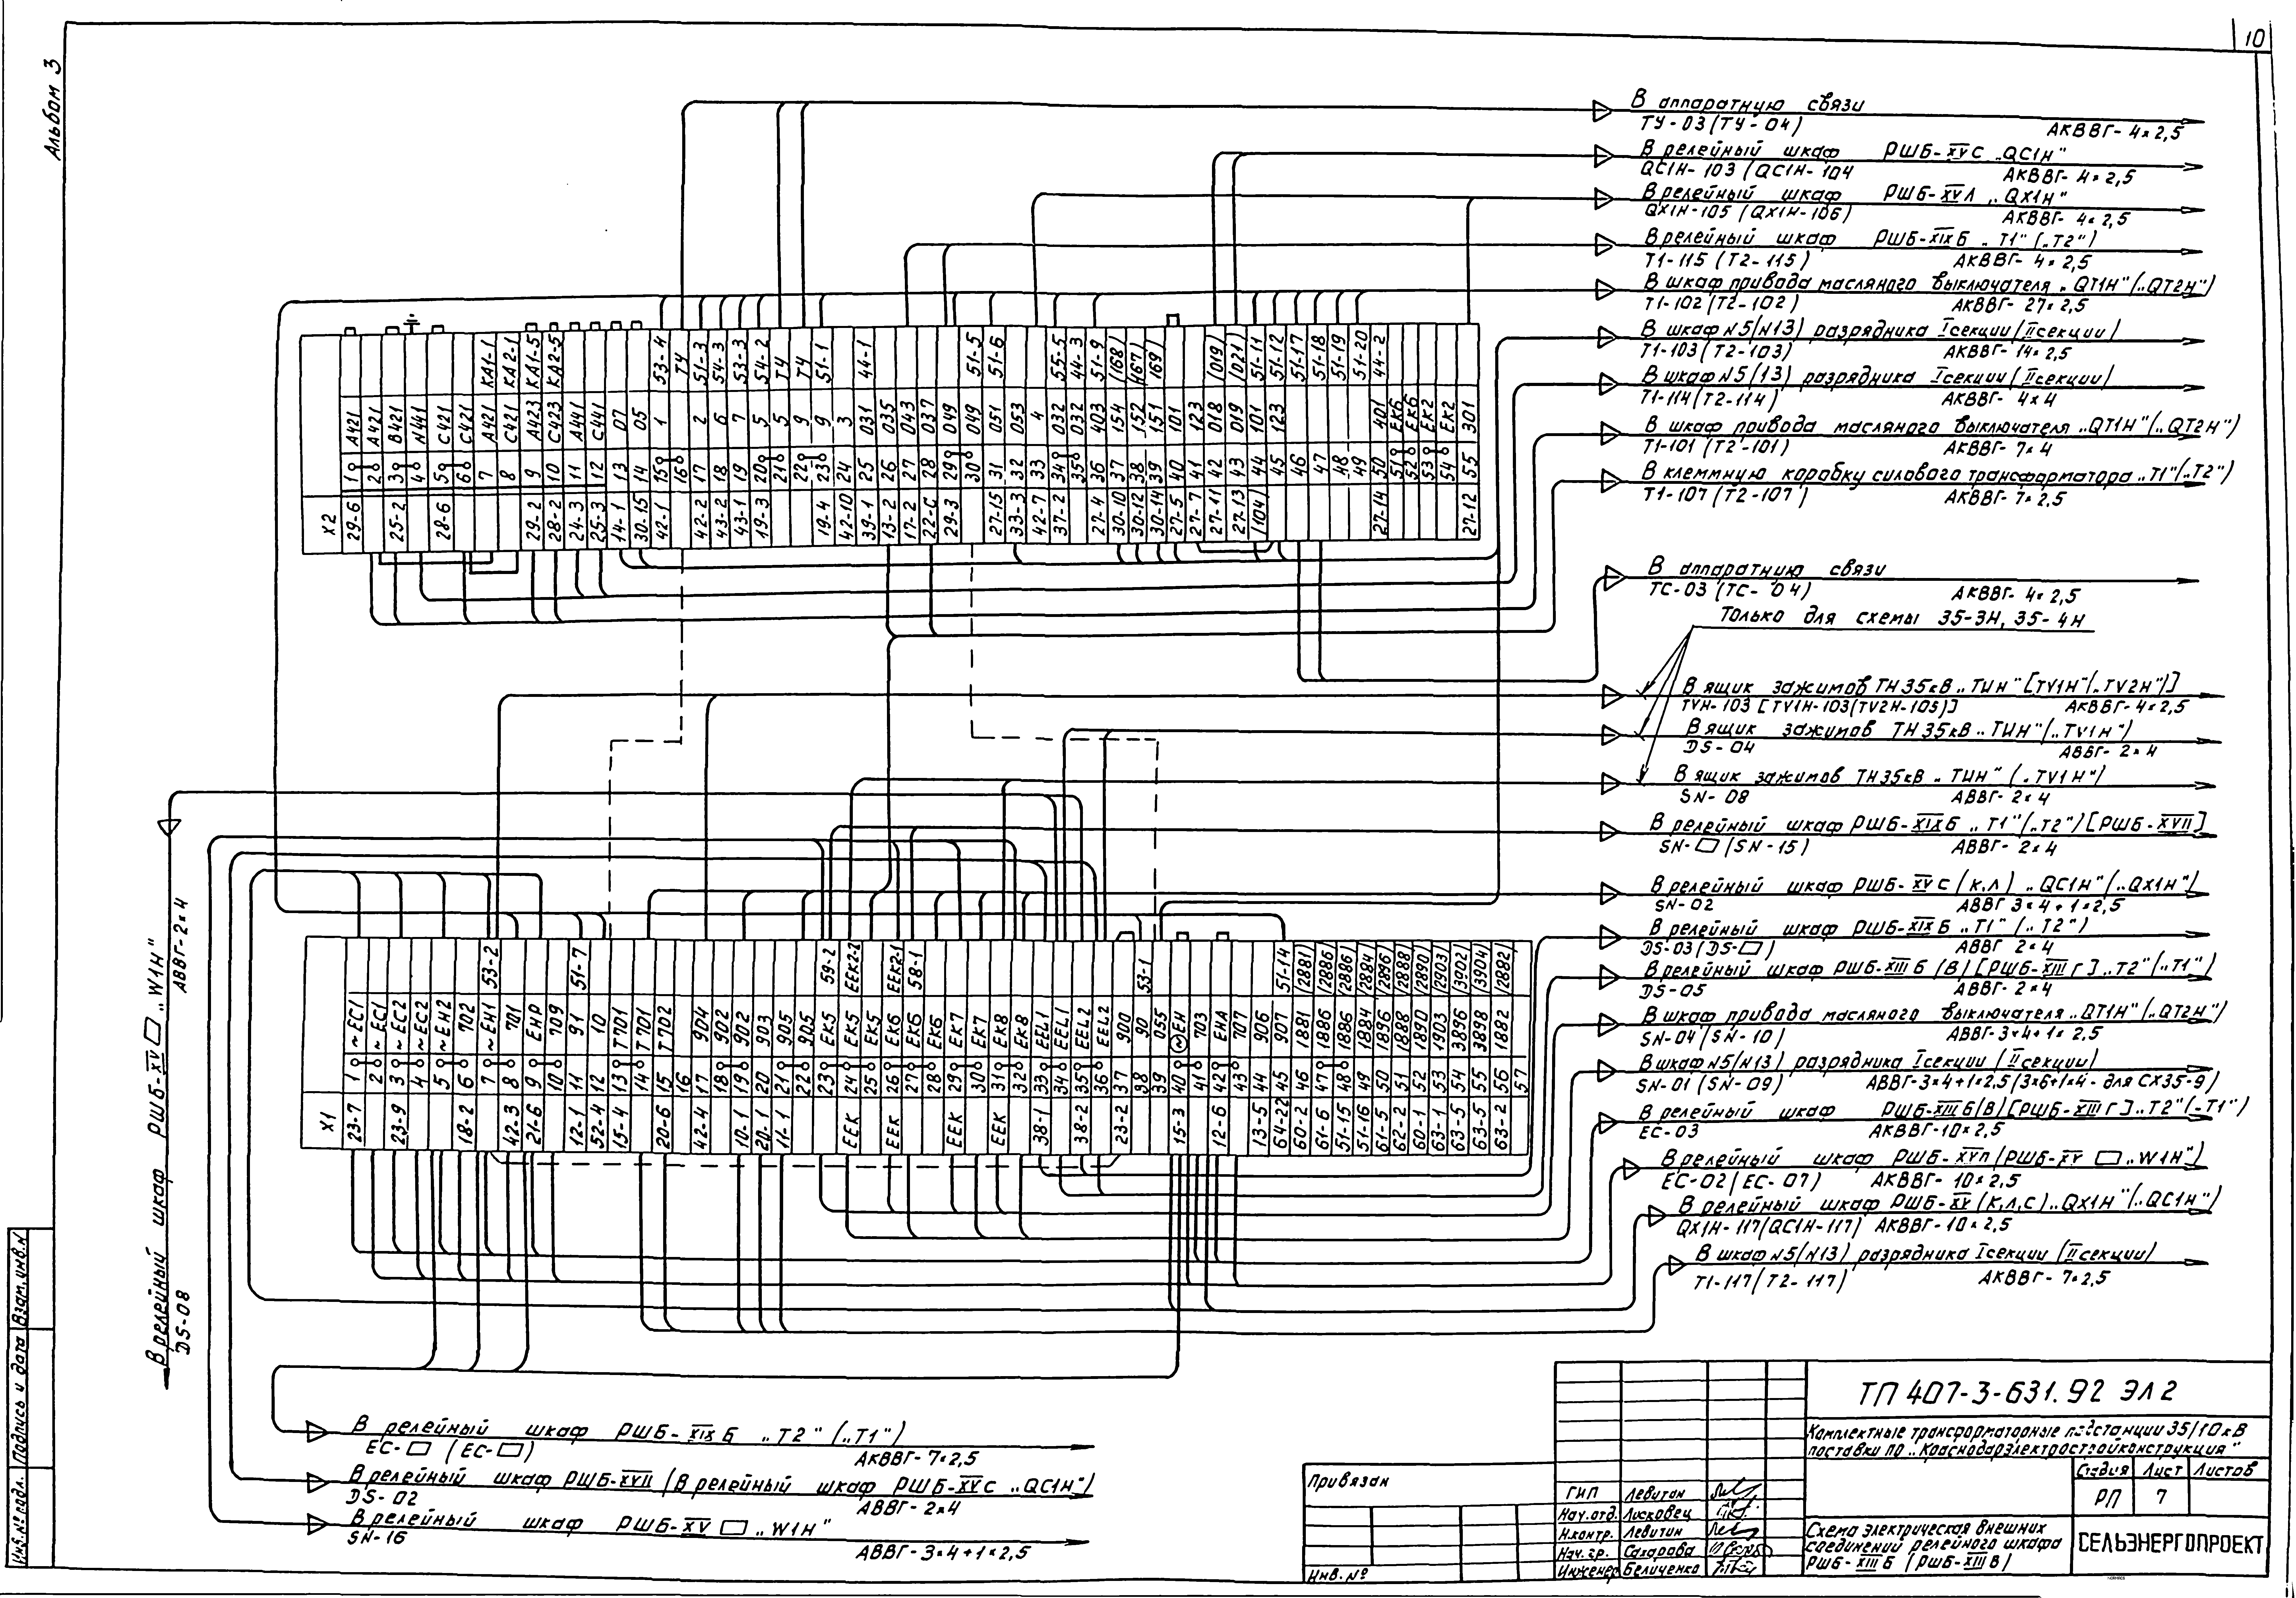 10
Альбом 3
В аппаратную связи
ТУ-03 (ТУ-04) АКВВГ-4×2,5
В релейный шкаф РШБ-XVС „QC1Н"
QC1Н-103 (QC1Н-104 АКВВГ-4×2,5
В релейный шкаф РШБ-XVЛ „QX1Н"
QX1Н-105 (QX1Н-106) АКВВГ-4×2,5
В релейный шкаф РШБ-XIXБ „Т1" („Т2")
Т1-115 (Т2-115) АКВВГ-4×2,5
В шкаф привода масляного выключателя „QT1Н" („QT2Н")
Т1-102 (Т2-102) АКВВГ-27×2,5
В шкаф N5(N13) разрядника I секции (II секции)
Т1-103 (Т2-103) АКВВГ-14×2,5
В шкаф N5(13) разрядника I секции (II секции)
Т1-114 (Т2-114) АКВВГ-4×4
В шкаф привода масляного выключателя „QT1Н" („QT2Н")
Т1-101 (Т2-101) АКВВГ-7×4
В клеммную коробку силового трансформатора „Т1" („Т2")
Т1-107 (Т2-107) АКВВГ-7×2,5
Х2
29-6 1 А421
2 А421
25-2 3 В421
4 N441
28-6 5 С421
6 С421
7 А421 КА1-1
8 С421 КА2-1
29-2 9 А423 КА1-5
28-2 10 С423 КА2-5
24-3 11 А441
25-3 12 С441
14-1 13 07
30-15 14 05
42-1 15 1 53-4
16 ТУ
42-2 17 2 51-3
43-2 18 6 54-3
43-1 19 7 53-3
19-3 20 5 54-2
21 5 ТУ
22 9 ТУ
19-4 23 9 51-1
42-10 24 3
39-1 25 031 44-1
13-2 26 035
17-2 27 043
22-С 28 037
29-3 29 049
30 049 51-5
27-15 31 051 51-6
33-3 32 053
42-7 33 4
37-2 34 032 55-5
35 032 44-3
27-4 36 403 51-9
30-10 37 154 (168)
30-12 38 152 (167)
30-14 39 151 (169)
27-5 40 101
27-7 41 123
27-11 42 018 (019)
27-13 43 019 (021)
(104) 44 101 51-11
45 123 51-12
46 51-17
47 51-18
48 51-19
49 51-20
27-14 50 401 44-2
51 ЕК6
52 ЕК6
53 ЕК2
54 ЕК2
27-12 55 301
В аппаратную связи
ТС-03 (ТС-04) АКВВГ-4×2,5
Только для схемы 35-3Н, 35-4Н
В ящик зажимов ТН35кВ „ТUН" [TV1Н" („TV2Н")]
TVН-103 [TV1Н-103 (TV2Н-103)] АКВВГ-4×2,5
В ящик зажимов ТН35кВ „ТUН" („TV1Н")
DS-04 АВВГ-2×4
В ящик зажимов ТН35кВ „ТUН" („TV1Н")
SN-08 АВВГ-2×4
В релейный шкаф РШБ-XIXБ „Т1" („Т2") [РШБ-XVII]
SN-▭ (SN-15) АВВГ-2×4
В релейный шкаф РШБ-XVС (К,Л) „QC1Н" („QX1Н")
SN-02 АВВГ 3×4+1×2,5
В релейный шкаф РШБ-XIXБ „Т1" („Т2")
DS-03 (DS-▭) АВВГ 2×4
В релейный шкаф РШБ-XIIIБ (В) [РШБ-XIIIГ] „Т2" („Т1")
DS-05 АВВГ-2×4
В шкаф привода масляного выключателя „QT1Н" („QT2Н")
SN-04 (SN-10) АВВГ-3×4+1×2,5
В шкаф N5(N13) разрядника I секции (II секции)
SN-01 (SN-09) АВВГ-3×4+1×2,5 (3×6+1×4 - для СХ35-9)
В релейный шкаф РШБ-XIIIБ (В) [РШБ-XIIIГ] „Т2" („Т1")
ЕС-03 АКВВГ-10×2,5
В релейный шкаф РШБ-XVП (РШБ-XV ▭ „W1Н")
ЕС-02 (ЕС-07) АКВВГ-10×2,5
В релейный шкаф РШБ-XV (К,Л,С) „QX1Н" („QC1Н")
QX1Н-117 (QC1Н-117) АКВВГ-10×2,5
В шкаф N5(N13) разрядника I секции (II секции)
Т1-117 (Т2-117) АКВВГ-7×2,5
В релейный шкаф РШБ-XV ▭ „W1Н"
DS-08 АВВГ-2×4
Х1
23-7 1 ~ЕС1
2 ~ЕС1
23-9 3 ~ЕС2
4 ~ЕС2
5 702
18-2 6 702
7 ~ЕН1 53-2
42-3 8 701
21-6 9 ЕНР
10 709
12-1 11 91 51-7
52-4 12 10
15-4 13 Т701
14 Т701
20-6 15 Т702
16
42-4 17 904
18 902
10-1 19 902
20-1 20 903
11-1 21 905
22 905
23 ЕК5 59-2
ЕЕК 24 ЕК5 ЕЕК2-2
25 ЕК5
ЕЕК 26 ЕК6 ЕЕК2-1
27 ЕК6 58-1
28 ЕК6
ЕЕК 29 ЕК7
30 ЕК7
ЕЕК 31 ЕК8
32 ЕК8
38-1 33 ЕЕL1
34 ЕЕL1
38-2 35 ЕЕL2
36 ЕЕL2
23-2 37 900
38 90 53-1
39 055
15-3 40 ЕН
41 703
12-6 42 ЕНА
43 707
13-5 44 906
64-22 45 907 51-14
60-2 46 1881 (2881)
61-6 47 1886 (2886)
51-15 48 1886 (2886)
51-16 49 1884 (2884)
61-5 50 1896 (2896)
62-2 51 1888 (2888)
60-1 52 1890 (2890)
63-1 53 1903 (2903)
63-5 54 3896 (3902)
63-5 55 3898 (3904)
63-2 56 1882 (2882)
57
В релейный шкаф РШБ-XIXБ „Т2" („Т1")
ЕС-▭ (ЕС-▭) АКВВГ-7×2,5
В релейный шкаф РШБ-XVII (В релейный шкаф РШБ-XVС „QC1Н")
DS-02 АВВГ-2×4
В релейный шкаф РШБ-XV ▭ „W1Н"
SN-16 АВВГ-3×4+1×2,5
Инв.№ подл. Подпись и дата Взам.инв.N
Привязан
Инв.№
ГИП Левитан
Нач.отд. Лисковец
Н.контр. Левитин
Нач.гр. Сахарова
Инженер Беличенко
ТП 407-3-631.92 ЭЛ2
Комплектные трансформаторные подстанции 35/10кВ
поставки по „Краснодарэлектростройконструкция"
Стадия Лист Листов
РП 7
Схема электрическая внешних
соединений релейного шкафа
РШБ-XIIIБ (РШБ-XIIIВ)
СЕЛЬЭНЕРГОПРОЕКТ